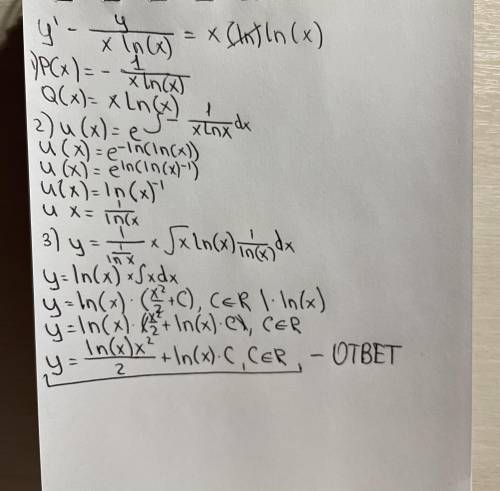 y' - y/(x ln(x)) = x (ln) ln(x)
1) P(x) = - 1/(x ln(x))
Q(x) = x ln(x)
2) u(x) = e^∫ - 1/(x lnx) dx
u(x) = e^(-ln(ln(x)))
u(x) = e^(ln(ln(x)^-1))
u(x) = ln(x)^-1
u x = 1/(ln(x
3) y = 1/(1/(ln x)) × ∫x ln(x) 1/(ln(x)) dx
y = ln(x) × ∫x dx
y = ln(x) · (x²/2 + C), C∈R | · ln(x)
y = ln(x) · (x²/2 + ln(x) · C), C∈R
y = ln(x)x²/2 + ln(x) · C, C∈R, - ОТВЕТ